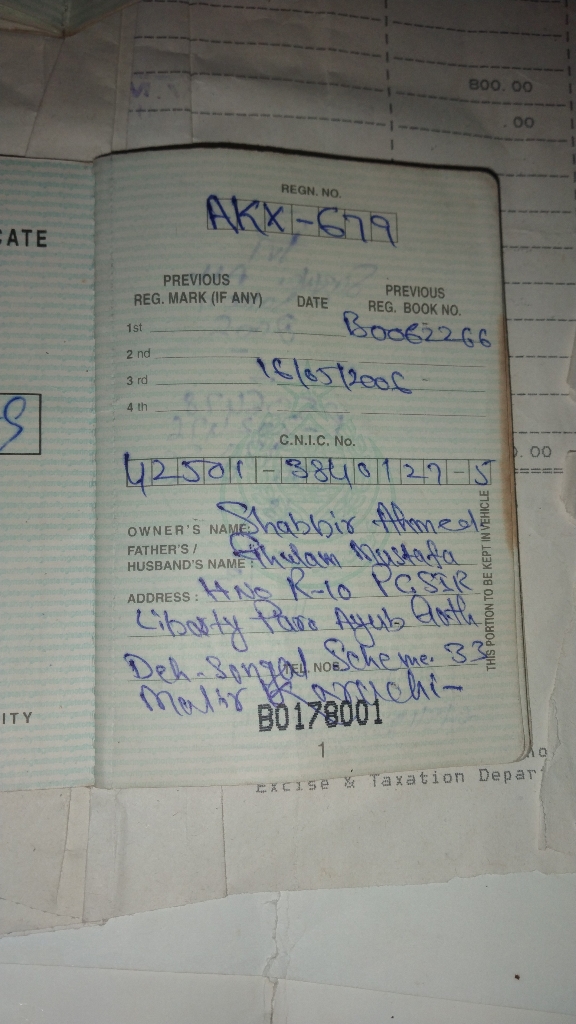 800.00
.00
CATE
REGN. NO.
AKX-679
PREVIOUS REG. MARK (IF ANY) DATE PREVIOUS REG. BOOK NO.
1st B0062266
2 nd
3 rd 16/05/2006
4 th
C.N.I.C. No.
42501-3840127-5
OWNER'S NAME: Shabbir Ahmed
FATHER'S / HUSBAND'S NAME: Ghulam Mustafa
ADDRESS: H No R-10 PCSIR
Liberty Ayub Goth
Deh-Songal Scheme. 33
TEL. NOS
Malir Karachi-
B0178001
1
THIS PORTION TO BE KEPT IN VEHICLE
.00
ITY
no
Excise & Taxation Depar